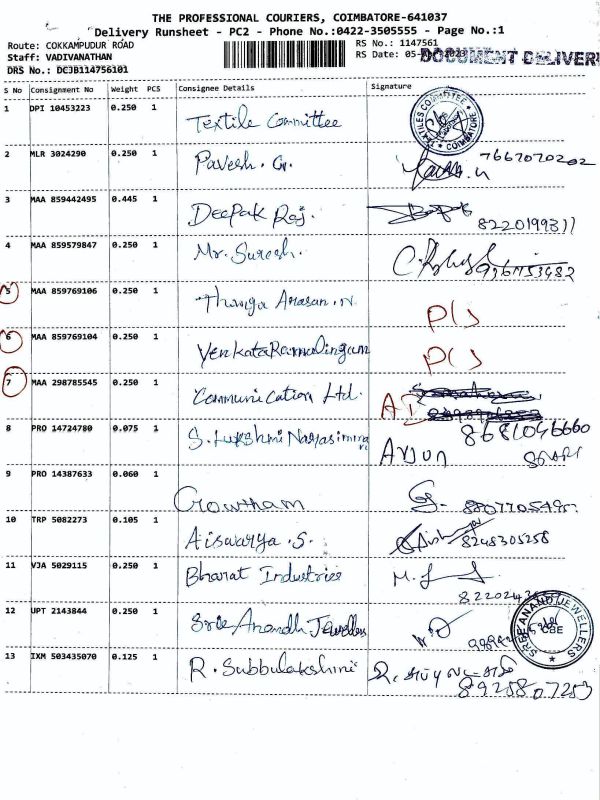 THE PROFESSIONAL COURIERS, COIMBATORE-641037
Delivery Runsheet - PC2 - Phone No.:0422-3505555 - Page No.:1
Route: COKKAMPUDUR ROAD
RS No.: 1147561
Staff: VADIVANATHAN
RS Date: 05-
DOCUMENT DELIVER
DRS No.: DCJB114756101
S No Consignment No Weight PCS Consignee Details Signature
1 DPI 10453223 0.250 1 Textile Committee
COIMBATORE
2 MLR 3024290 0.250 1 Pavesh. G. 7667070202
3 MAA 859442495 0.445 1 Deepak Raj. 8220199311
4 MAA 859579847 0.250 1 Mr. Suresh.
5 MAA 859769106 0.250 1 Thanga Arasan. N
6 MAA 859769104 0.250 1 VenkataRamalingam
7 MAA 298785545 0.250 1 Communication Ltd.
8 PRO 14724780 0.075 1 S. Lukshmi Narasimma 8681046660
Arjun
9 PRO 14387633 0.060 1 Growtham
10 TRP 5082273 0.105 1 Aiswarya. S. 8248305258
11 VJA 5029115 0.250 1 Bharat Industries
12 UPT 2143844 0.250 1 Sree Anandh Jewellers
SREE ANAND JEWELLERS
CBE
13 IXM 503435070 0.125 1 R. Subbulakshmi
8925807253